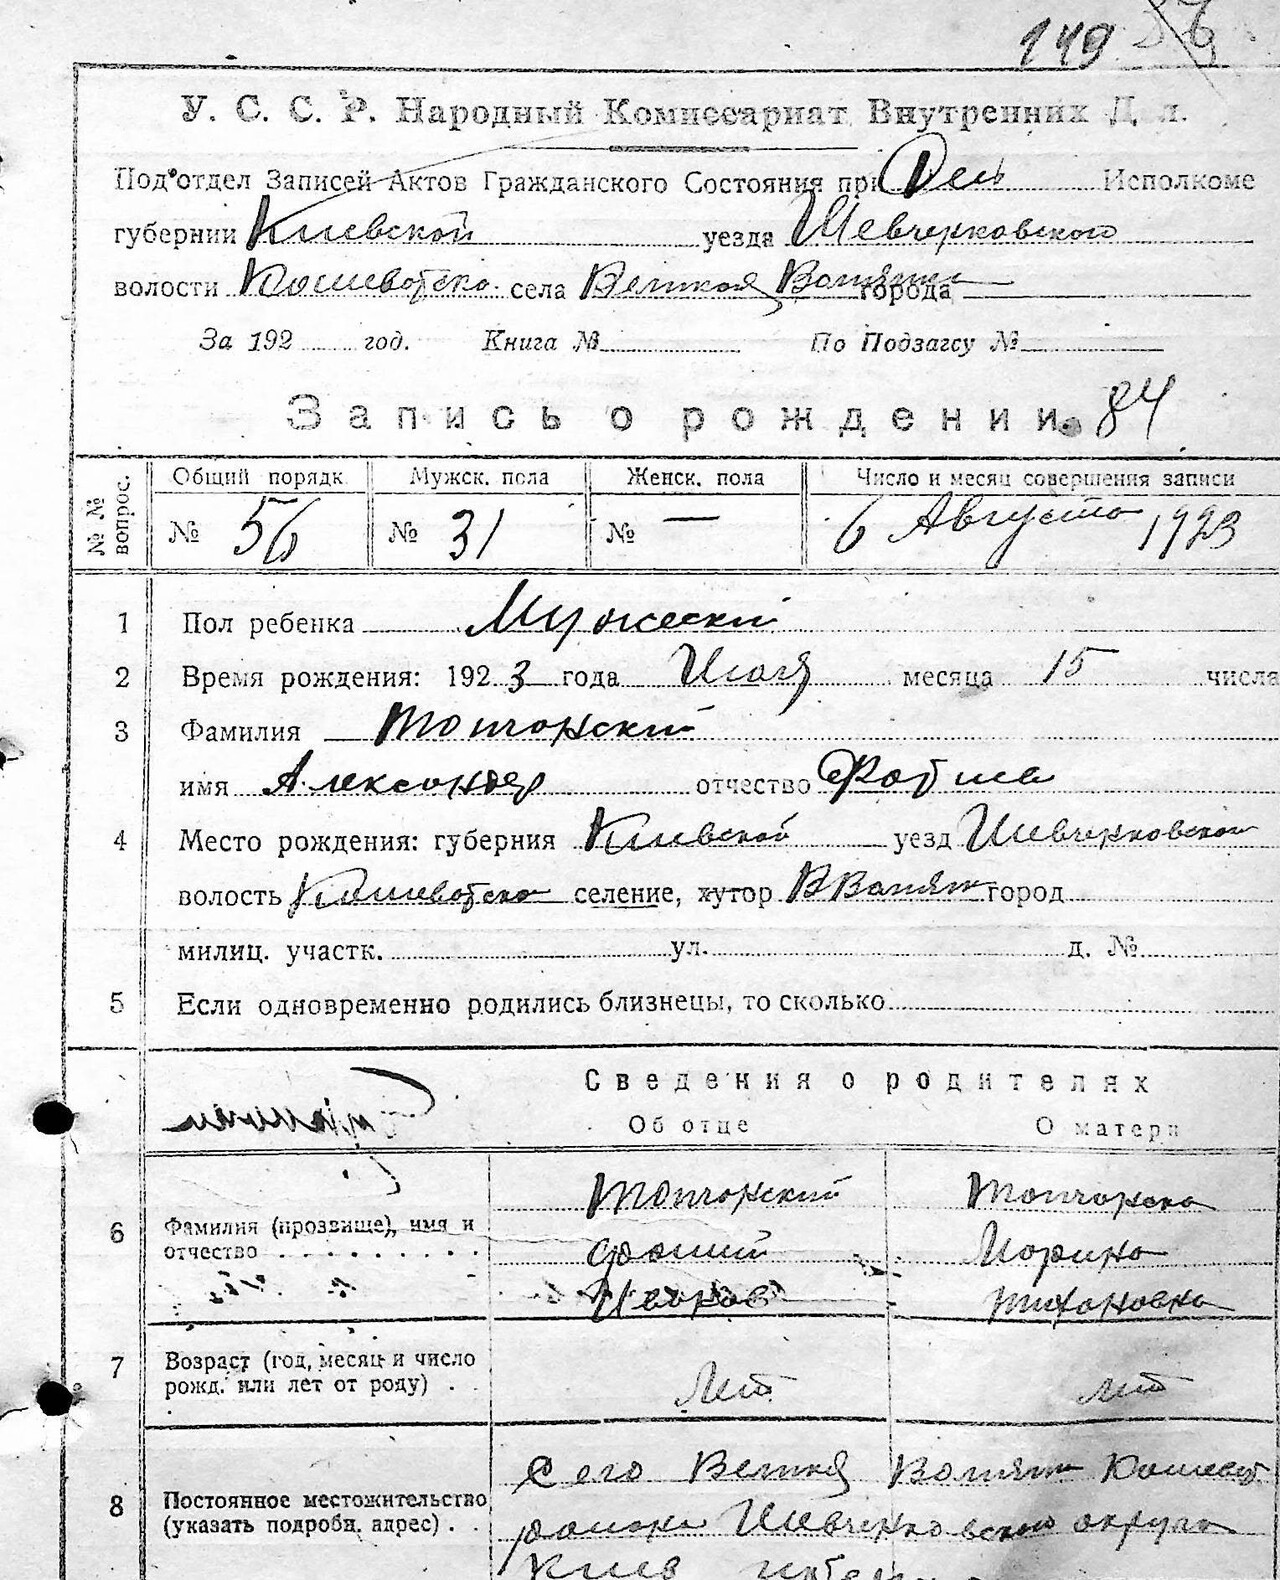 149
У. С. С. Р. Народный Комиссариат Внутренних Дл.
Подотдел Записей Актов Гражданского Состояния при Исполкоме
губернии Киевской уезда Шевченковского
волости села Великая города
За 192 год. Книга № По Подзагсу №
Запись о рождении. 84
№№ вопрос.
Общий порядк. Мужск. пола Женск. пола Число и месяц совершения записи
№ 56 № 31 № — 6 Августа 1923
1 Пол ребенка Мужеский
2 Время рождения: 1923 года Июля месяца 15 числа
3 Фамилия Топчонский
имя Александер отчество
4 Место рождения: губерния Киевской уезд Шевченковской
волость селение, хутор город
милиц. участк. ул. д. №
5 Если одновременно родились близнецы, то сколько
Сведения о родителях
Об отце О матери
6 Фамилия (прозвище), имя и отчество
Топчонский Топчонска
Марина
Тихоновна
7 Возраст (год, месяц и число рожд. или лет от роду)
лет лет
8 Постоянное местожительство (указать подробн. адрес)
Село Великая
района Шевченковской округа
Киев губер